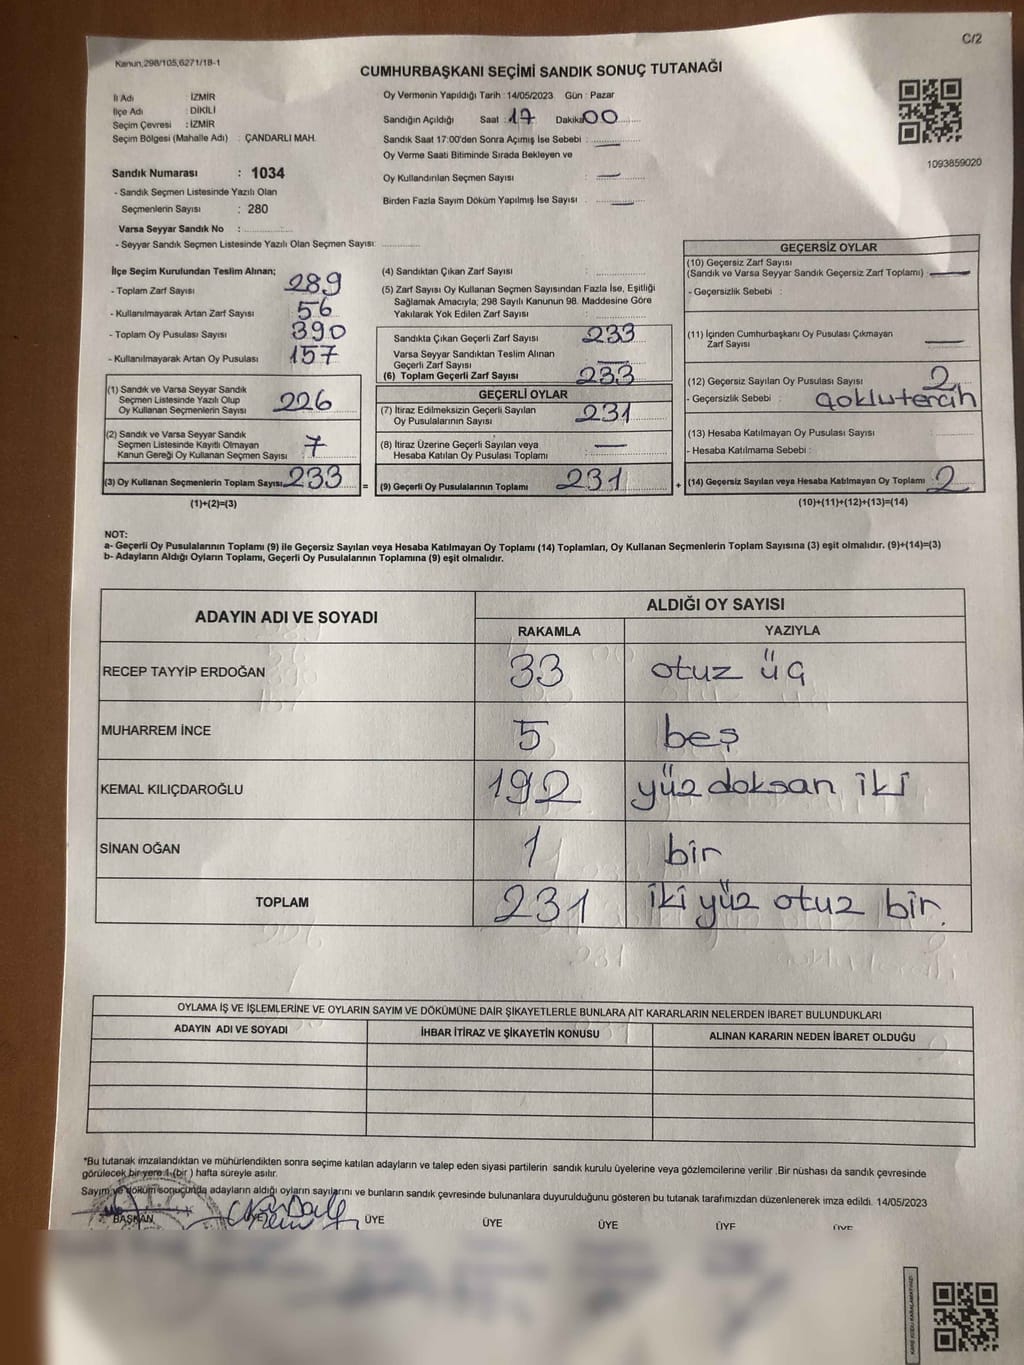 Kanun,298/105,6271/18-1
C/2
CUMHURBAŞKANI SEÇİMİ SANDIK SONUÇ TUTANAĞI
İl Adı : İZMİR
İlçe Adı : DİKİLİ
Seçim Çevresi : İZMİR
Seçim Bölgesi (Mahalle Adı) : ÇANDARLI MAH.
Oy Vermenin Yapıldığı Tarih : 14/05/2023 Gün : Pazar
Sandığın Açıldığı Saat : 17 Dakika 00
Sandık Saat 17:00'den Sonra Açımış İse Sebebi : —
Oy Verme Saati Bitiminde Sırada Bekleyen ve
Oy Kullandırılan Seçmen Sayısı : —
Birden Fazla Sayım Döküm Yapılmış İse Sayısı : —
1093859020
Sandık Numarası : 1034
- Sandık Seçmen Listesinde Yazılı Olan
Seçmenlerin Sayısı : 280
Varsa Seyyar Sandık No :
- Seyyar Sandık Seçmen Listesinde Yazılı Olan Seçmen Sayısı:
İlçe Seçim Kurulundan Teslim Alınan;
- Toplam Zarf Sayısı 289
- Kullanılmayarak Artan Zarf Sayısı 56
- Toplam Oy Pusulası Sayısı 390
- Kullanılmayarak Artan Oy Pusulası 157
(1) Sandık ve Varsa Seyyar Sandık
Seçmen Listesinde Yazılı Olup
Oy Kullanan Seçmenlerin Sayısı 226
(2) Sandık ve Varsa Seyyar Sandık
Seçmen Listesinde Kayıtlı Olmayan
Kanun Gereği Oy Kullanan Seçmen Sayısı 7
(3) Oy Kullanan Seçmenlerin Toplam Sayısı 233 =
(1)+(2)=(3)
(4) Sandıktan Çıkan Zarf Sayısı :
(5) Zarf Sayısı Oy Kullanan Seçmen Sayısından Fazla İse, Eşitliği
Sağlamak Amacıyla; 298 Sayılı Kanunun 98. Maddesine Göre
Yakılarak Yok Edilen Zarf Sayısı :
Sandıkta Çıkan Geçerli Zarf Sayısı : 233
Varsa Seyyar Sandıktan Teslim Alınan
Geçerli Zarf Sayısı : —
(6) Toplam Geçerli Zarf Sayısı : 233
GEÇERLİ OYLAR
(7) İtiraz Edilmeksizin Geçerli Sayılan
Oy Pusulalarının Sayısı : 231
(8) İtiraz Üzerine Geçerli Sayılan veya
Hesaba Katılan Oy Pusulası Toplamı : —
(9) Geçerli Oy Pusulalarının Toplamı 231 +
GEÇERSİZ OYLAR
(10) Geçersiz Zarf Sayısı
(Sandık ve Varsa Seyyar Sandık Geçersiz Zarf Toplamı) : —
- Geçersizlik Sebebi :
(11) İçinden Cumhurbaşkanı Oy Pusulası Çıkmayan
Zarf Sayısı : —
(12) Geçersiz Sayılan Oy Pusulası Sayısı : 2
- Geçersizlik Sebebi : çoklu tercih
(13) Hesaba Katılmayan Oy Pusulası Sayısı :
- Hesaba Katılmama Sebebi :
(14) Geçersiz Sayılan veya Hesaba Katılmayan Oy Toplamı 2
(10)+(11)+(12)+(13)=(14)
NOT:
a- Geçerli Oy Pusulalarının Toplamı (9) ile Geçersiz Sayılan veya Hesaba Katılmayan Oy Toplamı (14) Toplamları, Oy Kullanan Seçmenlerin Toplam Sayısına (3) eşit olmalıdır. (9)+(14)=(3)
b- Adayların Aldığı Oyların Toplamı, Geçerli Oy Pusulalarının Toplamına (9) eşit olmalıdır.
ADAYIN ADI VE SOYADI ALDIĞI OY SAYISI
RAKAMLA YAZIYLA
RECEP TAYYİP ERDOĞAN 33 otuz üç
MUHARREM İNCE 5 beş
KEMAL KILIÇDAROĞLU 192 yüz doksan iki
SİNAN OĞAN 1 bir
TOPLAM 231 iki yüz otuz bir.
OYLAMA İŞ VE İŞLEMLERİNE VE OYLARIN SAYIM VE DÖKÜMÜNE DAİR ŞİKAYETLERLE BUNLARA AİT KARARLARIN NELERDEN İBARET BULUNDUKLARI
ADAYIN ADI VE SOYADI İHBAR İTİRAZ VE ŞİKAYETİN KONUSU ALINAN KARARIN NEDEN İBARET OLDUĞU
*Bu tutanak imzalandıktan ve mühürlendikten sonra seçime katılan adayların ve talep eden siyasi partilerin sandık kurulu üyelerine veya gözlemcilerine verilir .Bir nüshası da sandık çevresinde
görülecek bir yere 1 (bir ) hafta süreyle asılır.
Sayım ve döküm sonucunda adayların aldığı oyların sayılarını ve bunların sandık çevresinde bulunanlara duyurulduğunu gösteren bu tutanak tarafımızdan düzenlenerek imza edildi. 14/05/2023
BAŞKAN ÜYE ÜYE ÜYE ÜYE ÜYE